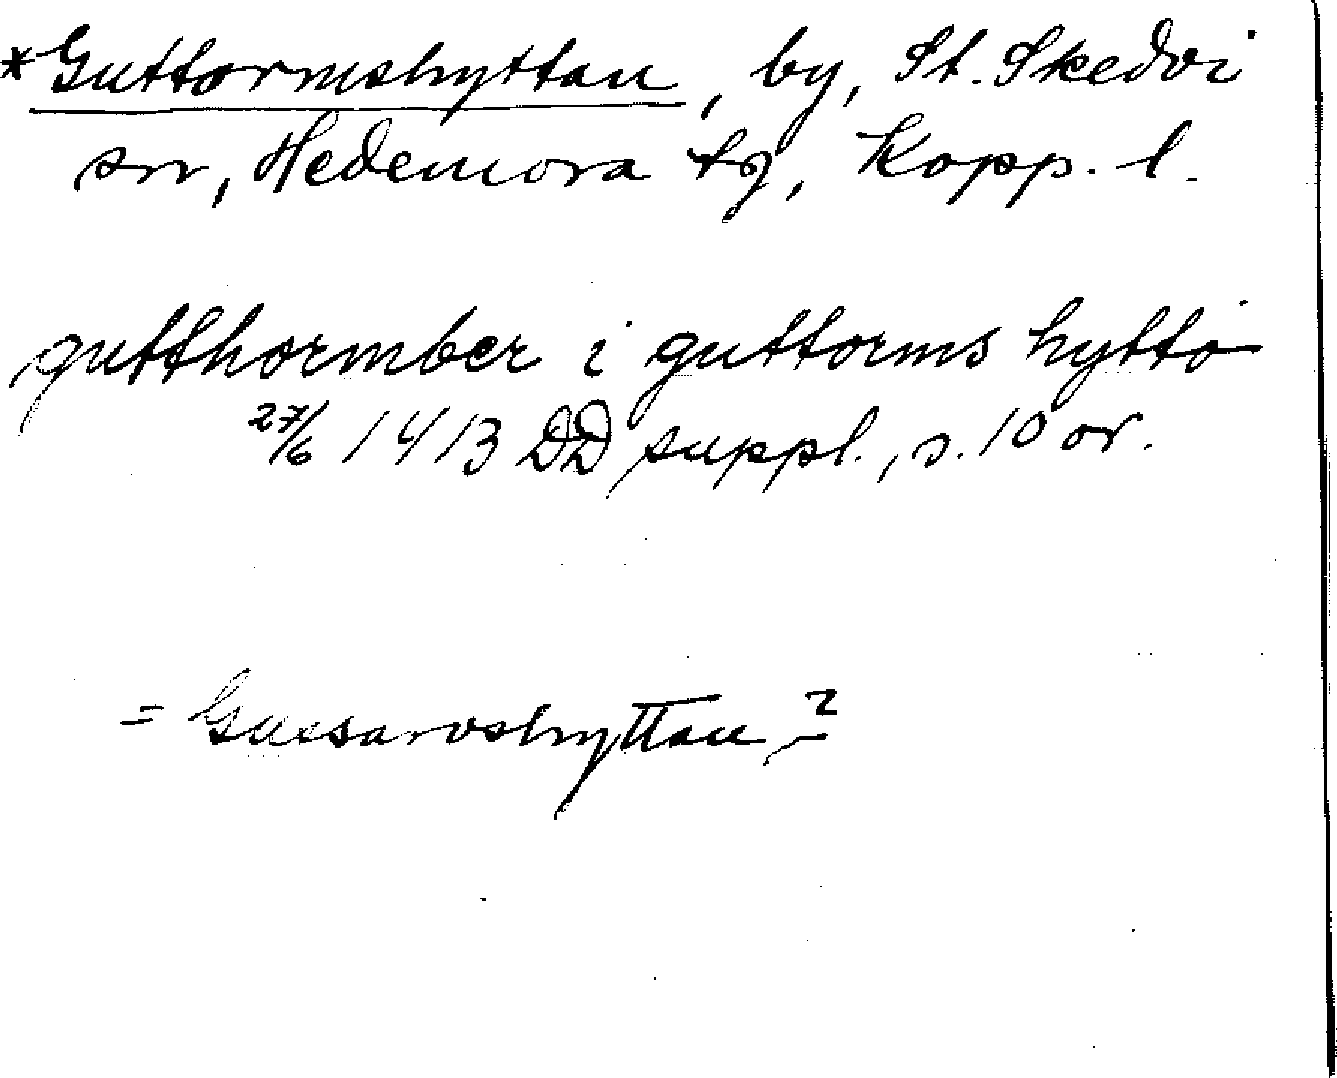 *Guttormshyttan, by, St. Skedvi
sn, Hedemora tg, Kopp. l.
gutthormber i guttorms hytto
27/6 1413 DD suppl., s. 10 or.
= Gussarvshyttan?